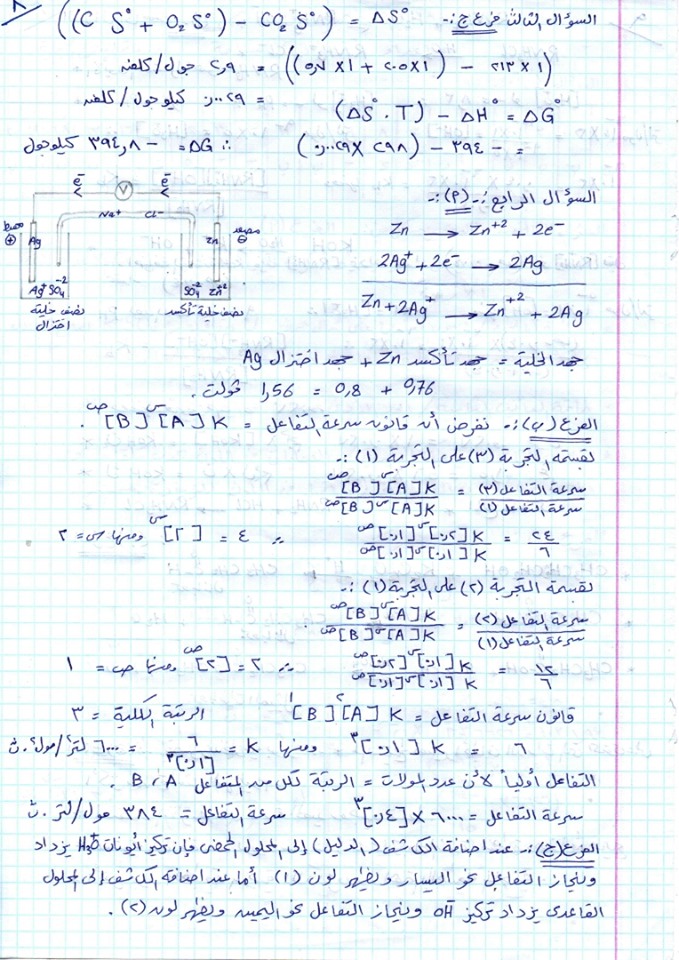 السؤال الثالث فرع ج :- ΔS° = ((C S° + O₂ S°) - CO₂ S°)
((٥٫٧ × ١ + ٢٠٥ × ١) - ٢١٣ × ١) = ٢٫٩ جول/كلفن
= ٠٫٠٠٢٩ كيلوجول/كلفن
ΔG° = ΔH° - (ΔS° . T)
= - ٣٩٤ - (٢٩٨ × ٠٫٠٠٢٩) ∴ ΔG = - ٣٩٤٫٨ كيلوجول
السؤال الرابع :- (أ) :-
Zn → Zn⁺² + 2e⁻
2Ag⁺ + 2e⁻ → 2Ag
Zn + 2Ag⁺ → Zn⁺² + 2Ag
e⁻ V e⁻
Na⁺ Cl⁻
مهبط ⊕ Ag
Zn مصعد ⊖
Ag⁺ SO₄⁻²
SO₄⁻² Zn⁺²
نصف خلية اختزال
نصف خلية تأكسد
جهد الخلية = جهد تأكسد Zn + جهد اختزال Ag
0,76 + 0,8 = 1,56 فولت .
الفرع (ب) :- نفرض أن قانون سرعة التفاعل = K [A]ˢ [B]ᵒ .
بقسمة التجربة (٣) على التجربة (١) :-
سرعة التفاعل (٣) / سرعة التفاعل (١) = K [A]س [B]ص / K [A]س [B]ص
٢٤ / ٦ = K [٠٫٢]س [٠٫١]ص / K [٠٫١]س [٠٫١]ص ∴ ٤ = [٢]س ومنها س = ٢
بقسمة التجربة (٢) على التجربة (١) :-
سرعة التفاعل (٢) / سرعة التفاعل (١) = K [A]س [B]ص / K [A]س [B]ص
١٢ / ٦ = K [٠٫١]س [٠٫٢]ص / K [٠٫١]س [٠٫١]ص ∴ ٢ = [٢]ص ومنها ص = ١
قانون سرعة التفاعل = K [A]² [B]¹ الرتبة الكلية = ٣
٦ = K [٠٫١]³ ومنها K = ٦ / [٠٫١]³ = ٦٠٠٠ لتر²/مول² . ث
التفاعل أولياً لأن عدد المولات = الرتبة لكل من المتفاعل A ، B .
سرعة التفاعل = ٦٠٠٠ × [٠٫٤]³ سرعة التفاعل = ٣٨٤ مول/لتر . ث
الفرع (ج) :- عند اضافة الكاشف (الدليل) إلى المحلول الحمضي فإن تركيز أيونات H₃O⁺ يزداد
وينحاز التفاعل نحو اليسار ويظهر لون (١) أما عند اضافة الكاشف إلى المحلول
القاعدي يزداد تركيز OH⁻ وينحاز التفاعل نحو اليمين ويظهر لون (٢) .